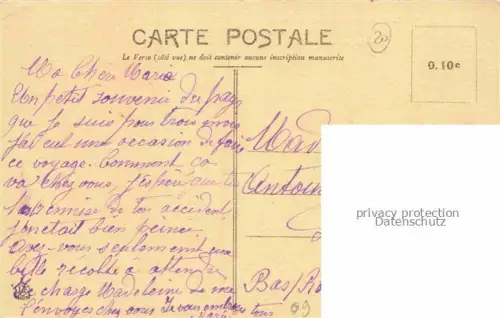 CARTE POSTALE
20
Le Verso (côté vue) ne doit contenir aucune inscription manuscrite
0.10c
Ma Chère Maria
Un petit souvenir du pays
que je suis pour trois
j'ai eut une occasion de faire
ce voyage. Comment ca
va chez vous, j'espère que tu
remise de ton accident
bien peinée
Avez-vous seulement une
belle récolte à attendre
Je charge Madeleine de me
chez vous Je vous embrasse
tous
Mad
Antoin
Bas/R
69
privacy protection
Datenschutz